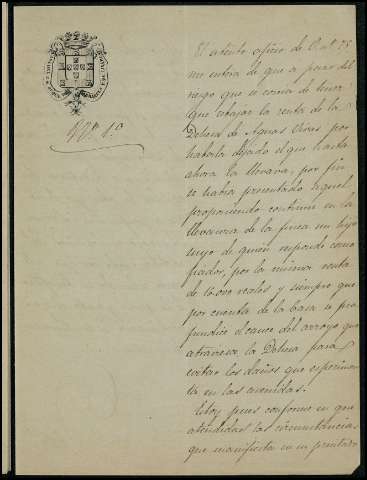 Nº 10
El atento oficio de V. nº 75
me entera de que a pesar del
riesgo que se corria de tener
que rebajar la renta de la
Dehesa de Aguas Vivas por
haberla dejado el que hasta
ahora la llevava, por fin
se habia presentado aquel
proponiendo continue en la
llevanza de la finca un hijo
suyo de quien responde como
fiador, por la misma renta
de 16.000 reales y siempre que
por cuenta de la Casa se pro-
fundice el cauce del arroyo que
atraviesa la Dehesa para
evitar los daños que esperimen-
ta en las avenidas.
Estoy pues conforme en que
atendidas las circunstancias
que manifiesta en su